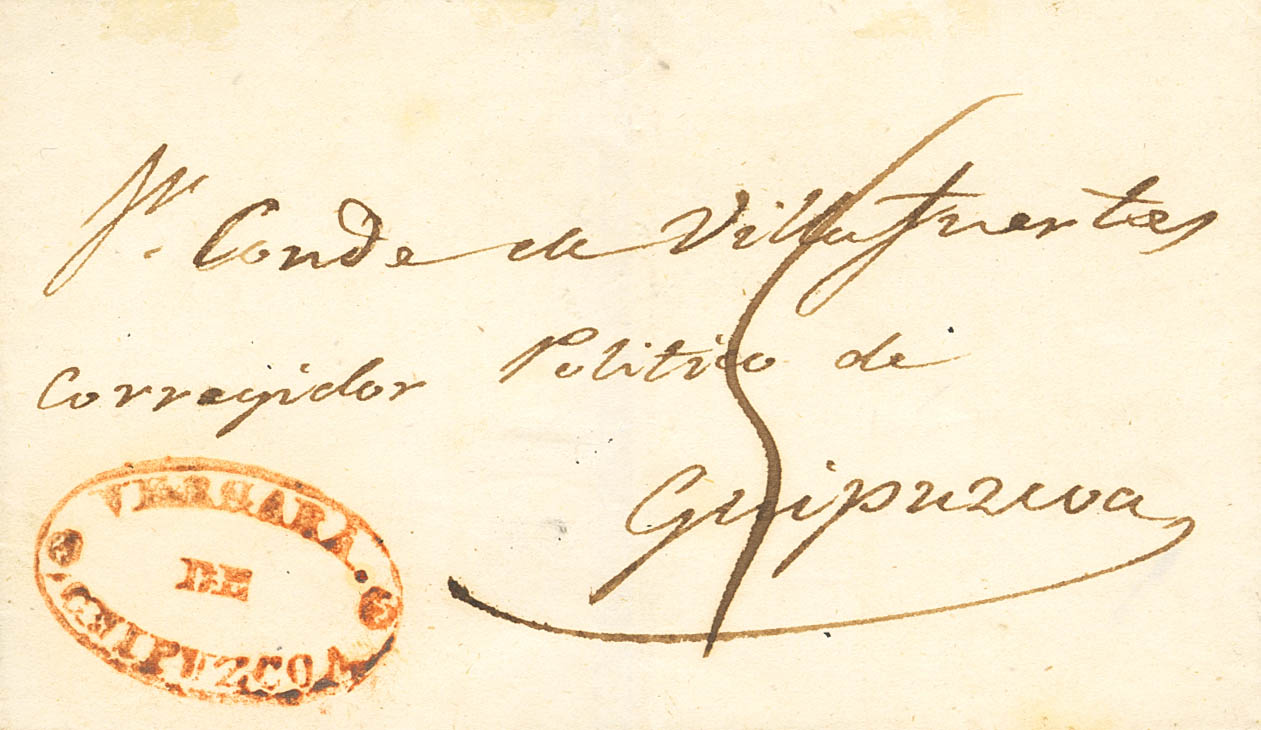 Sr. Conde de Villafuertes
Corregidor Politico de
Guipuzcoa
VERGARA.
DE
GUIPUZCOA